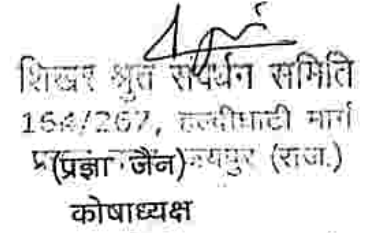 शिखर श्रुत संवर्धन समिति
164/267, हल्दीघाटी मार्ग
(प्रज्ञा जैन) जयपुर (राज.)
कोषाध्यक्ष